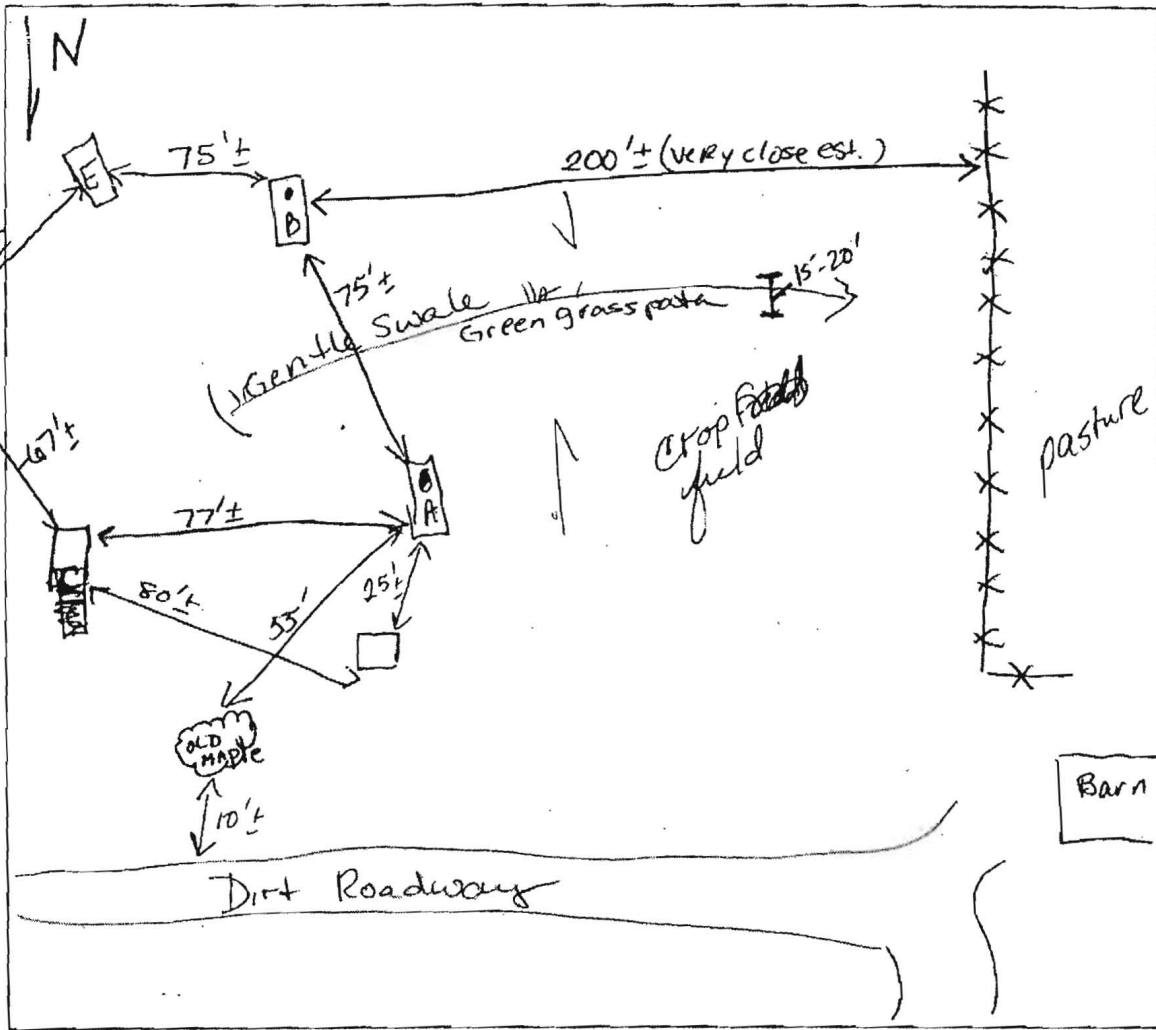 N
75'±
E
B
200'± (very close est.)
75'±
15'-20'
Gentle Swale
Green grass
Crop
field
pasture
67'±
77'±
A
80'±
55'
25'±
OLD
MAPLE
10'±
Barn
Dirt Roadway